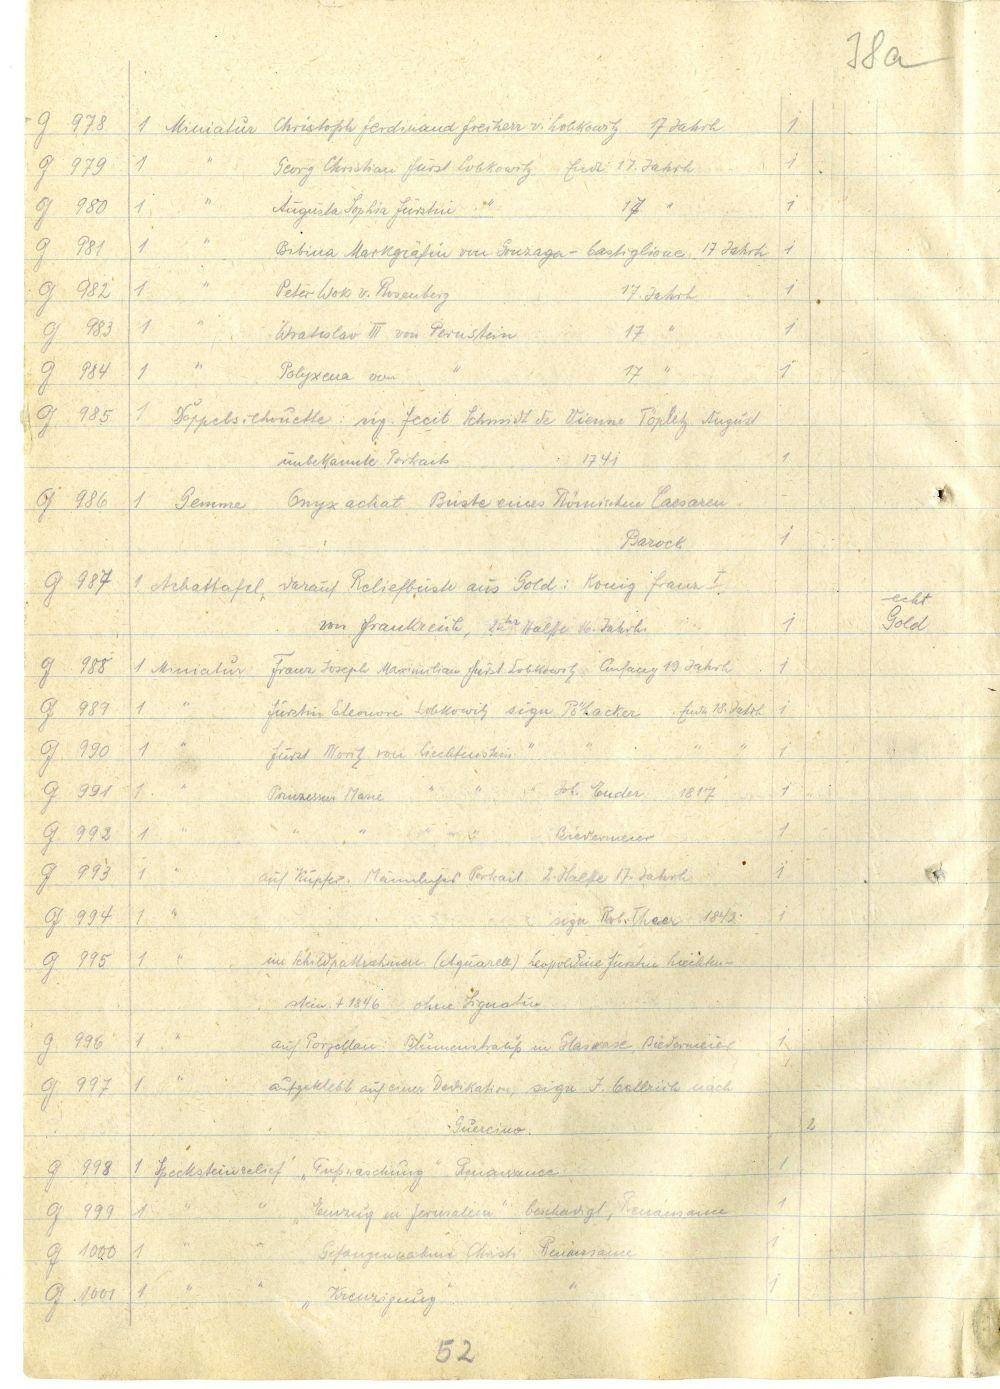 38a
G 978 1 Miniatur Christoph Ferdinand Freiherr v. Lobkowitz 17 Jahrh 1
G 979 1 " Georg Christian Fürst Lobkowitz Ende 17. Jahrh 1
G 980 1 " Augusta Sophia Fürstin " 17 " 1
G 981 1 " Bibina Markgräfin von Gonzaga - Castiglione 17 Jahrh 1
G 982 1 " Peter Wok v. Rosenberg 17. Jahrh 1
G 983 1 " Wratislav III von Pernstein 17 " 1
G 984 1 " Polyxena von " 17 " 1
G 985 1 Doppelsilhouette: sig. fecit Schmidt de Vienne Töplitz August
unbekannte Portraits 1741 1
G 986 1 Gemme Onyx achat Büste eines Römischen Caesaren
Barock 1
G 987 1 Achattafel, darauf Reliefbüste aus Gold: König Franz I.
echt
von Frankreich, 2te Hälfte 16. Jahrh. 1 Gold
G 988 1 Miniatur Franz Joseph Maximilian Fürst Lobkowitz Anfang 19 Jahrh 1
G 989 1 " Fürstin Eleonore Lobkowitz sign Ende 18. Jahrh 1
G 990 1 " Fürst Moritz von Liechtenstein " " " " 1
G 991 1 " Prinzessin Marie " " " Joh. Ender 1817 1
G 992 1 " " " " " " Biedermeier 1
G 993 1 " auf Kupfer. Männliches Portrait 2. Hälfte 17. Jahrh 1
G 994 1 " sign Rob. Theer 1843. 1
G 995 1 " im Schildpattrahmen (Aquarell) Leopoldine Fürstin Liechten-
stein + 1846 ohne Signatur
G 996 1 " auf Porzellan: Blumenstrauß in Glasvase Biedermeier 1
G 997 1 " aufgeklebt auf einer Dedikation, sign J. nach
Guercino. 2
G 998 1 Specksteinrelief „Fußwaschung" Renaissance 1
G 999 1 " " „Einzug in Jerusalem" beschädigt, Renaissance 1
G 1000 1 " " Gefangennahme Christi Renaissance 1
G 1001 1 " " „Kreuzigung" " 1
52